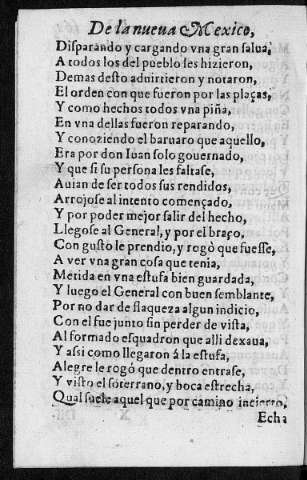 De la nueua Mexico,
Disparando y cargando vna gran salua,
A todos los del pueblo les hizieron,
Demas desto aduirtieron y notaron,
El orden con que fueron por las plaças,
Y como hechos todos vna piña,
En vna dellas fueron reparando,
Y conoziendo el baruaro que aquello,
Era por don Iuan solo gouernado,
Y que si su persona les faltase,
Auian de ser todos sus rendidos,
Arrojose al intento començado,
Y por poder mejor salir del hecho,
Llegose al General, y por el braço,
Con gusto le prendio, y rogò que fuesse,
A ver vna gran cosa que tenia,
Metida en vna estufa bien guardada,
Y luego el General con buen semblante,
Por no dar de flaqueza algun indicio,
Con el fue junto sin perder de vista,
Al formado esquadron que alli dexaua,
Y assi como llegaron á la estufa,
Alegre le rogò que dentro entrase,
Y visto el soterrano, y boca estrecha,
Qual suele aquel que por camino incierto,
Echa